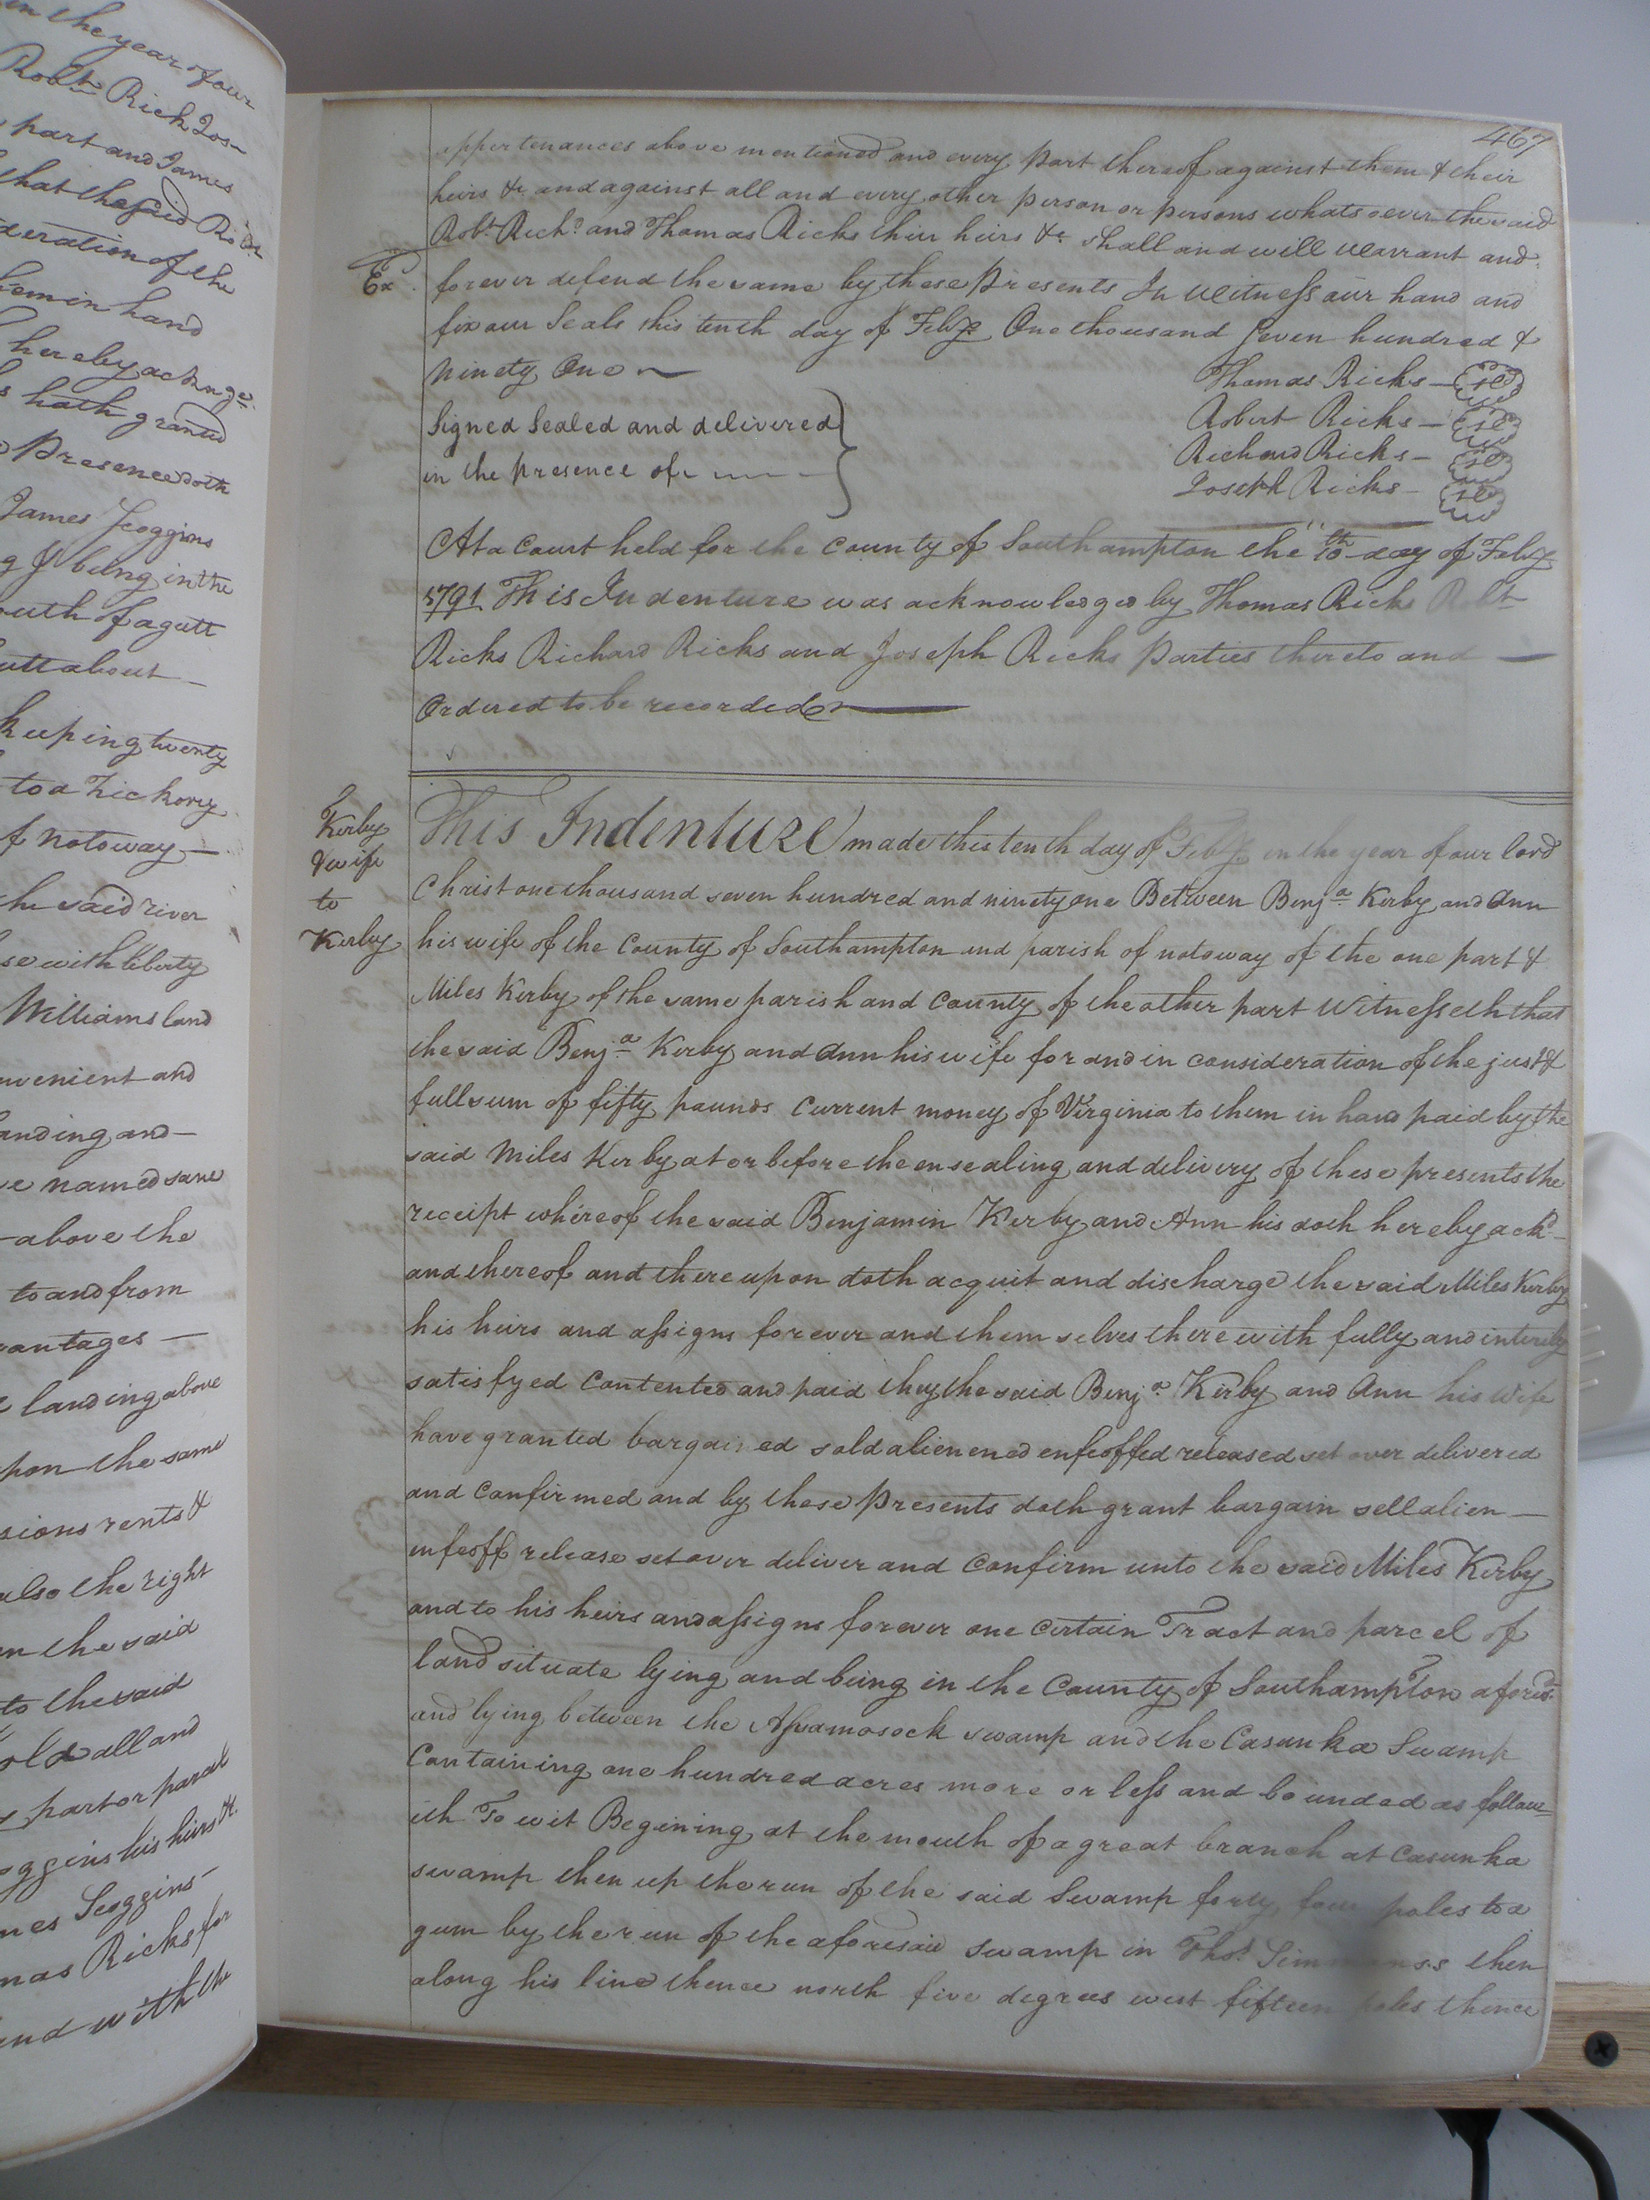 in the year of our
Robt. Rich Jos-
part and James
that the said Robt.
deration of the
hem in hand
hereby acknge.
hath granted
Presence doth
James Scoggins
g & being in the
outh of a gutt
utt about -
keeping twenty
to a Hickory
f notoway -
the said river
se with liberty
Williams land
venient and
anding and -
e named save
above the
to and from
vantages -
landing above
pon the same
sions rents &
also the right
n the said
to the said
old all and
part or parcel
oggins his heirs &c.
mes Scoggins -
mas Ricks for
and with the
467
appertenances above mentioned and every part thereof against them & their
heirs &c. and against all and every other person or persons whatsoever the said
Robt. Richd. and Thomas Ricks their heirs &c. shall and will warrant and
Ex. forever defend the same by these Presents In Witness our hand and
fix our Seals this tenth day of Feby. One thousand Seven hundred &
Ninety One
Thomas Ricks - sed
Signed Sealed and delivered
Robert Ricks - se
in the presence of
Richard Ricks - se
Joseph Ricks - se
At a Court held for the County of Southampton the 10th day of Feby.
1791 This Indenture was acknowledged by Thomas Ricks Robt.
Ricks Richard Ricks and Joseph Ricks Parties thereto and
Ordered to be recorded
Kirby
& wife
to
Kirby
This Indenture made this tenth day of Feby. in the year of our lord
Christ one thousand seven hundred and ninety one Between Benja. Kirby and Ann
his wife of the County of Southampton and parish of notoway of the one part &
Miles Kirby of the same parish and County of the other part Witnesseth that
the said Benja. Kirby and Ann his wife for and in consideration of the just &
full sum of fifty pounds Current money of Virginia to them in hand paid by the
said Miles Kirby at or before the ensealing and delivery of these presents the
receipt whereof the said Benjamin Kirby and Ann his doth hereby ackd.
and thereof and thereupon doth acquit and discharge the said Miles Kirby
his heirs and assigns forever and them selves there with fully and intirely
satisfyed Contented and paid they the said Benja. Kirby and Ann his Wife
have granted bargained sold alienened enfeoffed released set over delivered
and Confirmed and by these Presents doth grant bargain sell alien -
enfeoff release set over deliver and Confirm unto the said Miles Kirby
and to his heirs and assigns forever one Certain Tract and parcel of
land situate lying and being in the County of Southampton aforesd.
and lying between the Assamosock swamp and the Casunka Swamp
Containing one hundred acres more or less and bounded as follow-
ith To wit Begining at the mouth of a great branch at Casunka
swamp then up the run of the said Swamp forty four poles to a
gum by the run of the aforesaid Swamp in Thos. then
along his line thence north five degrees west fifteen poles thence